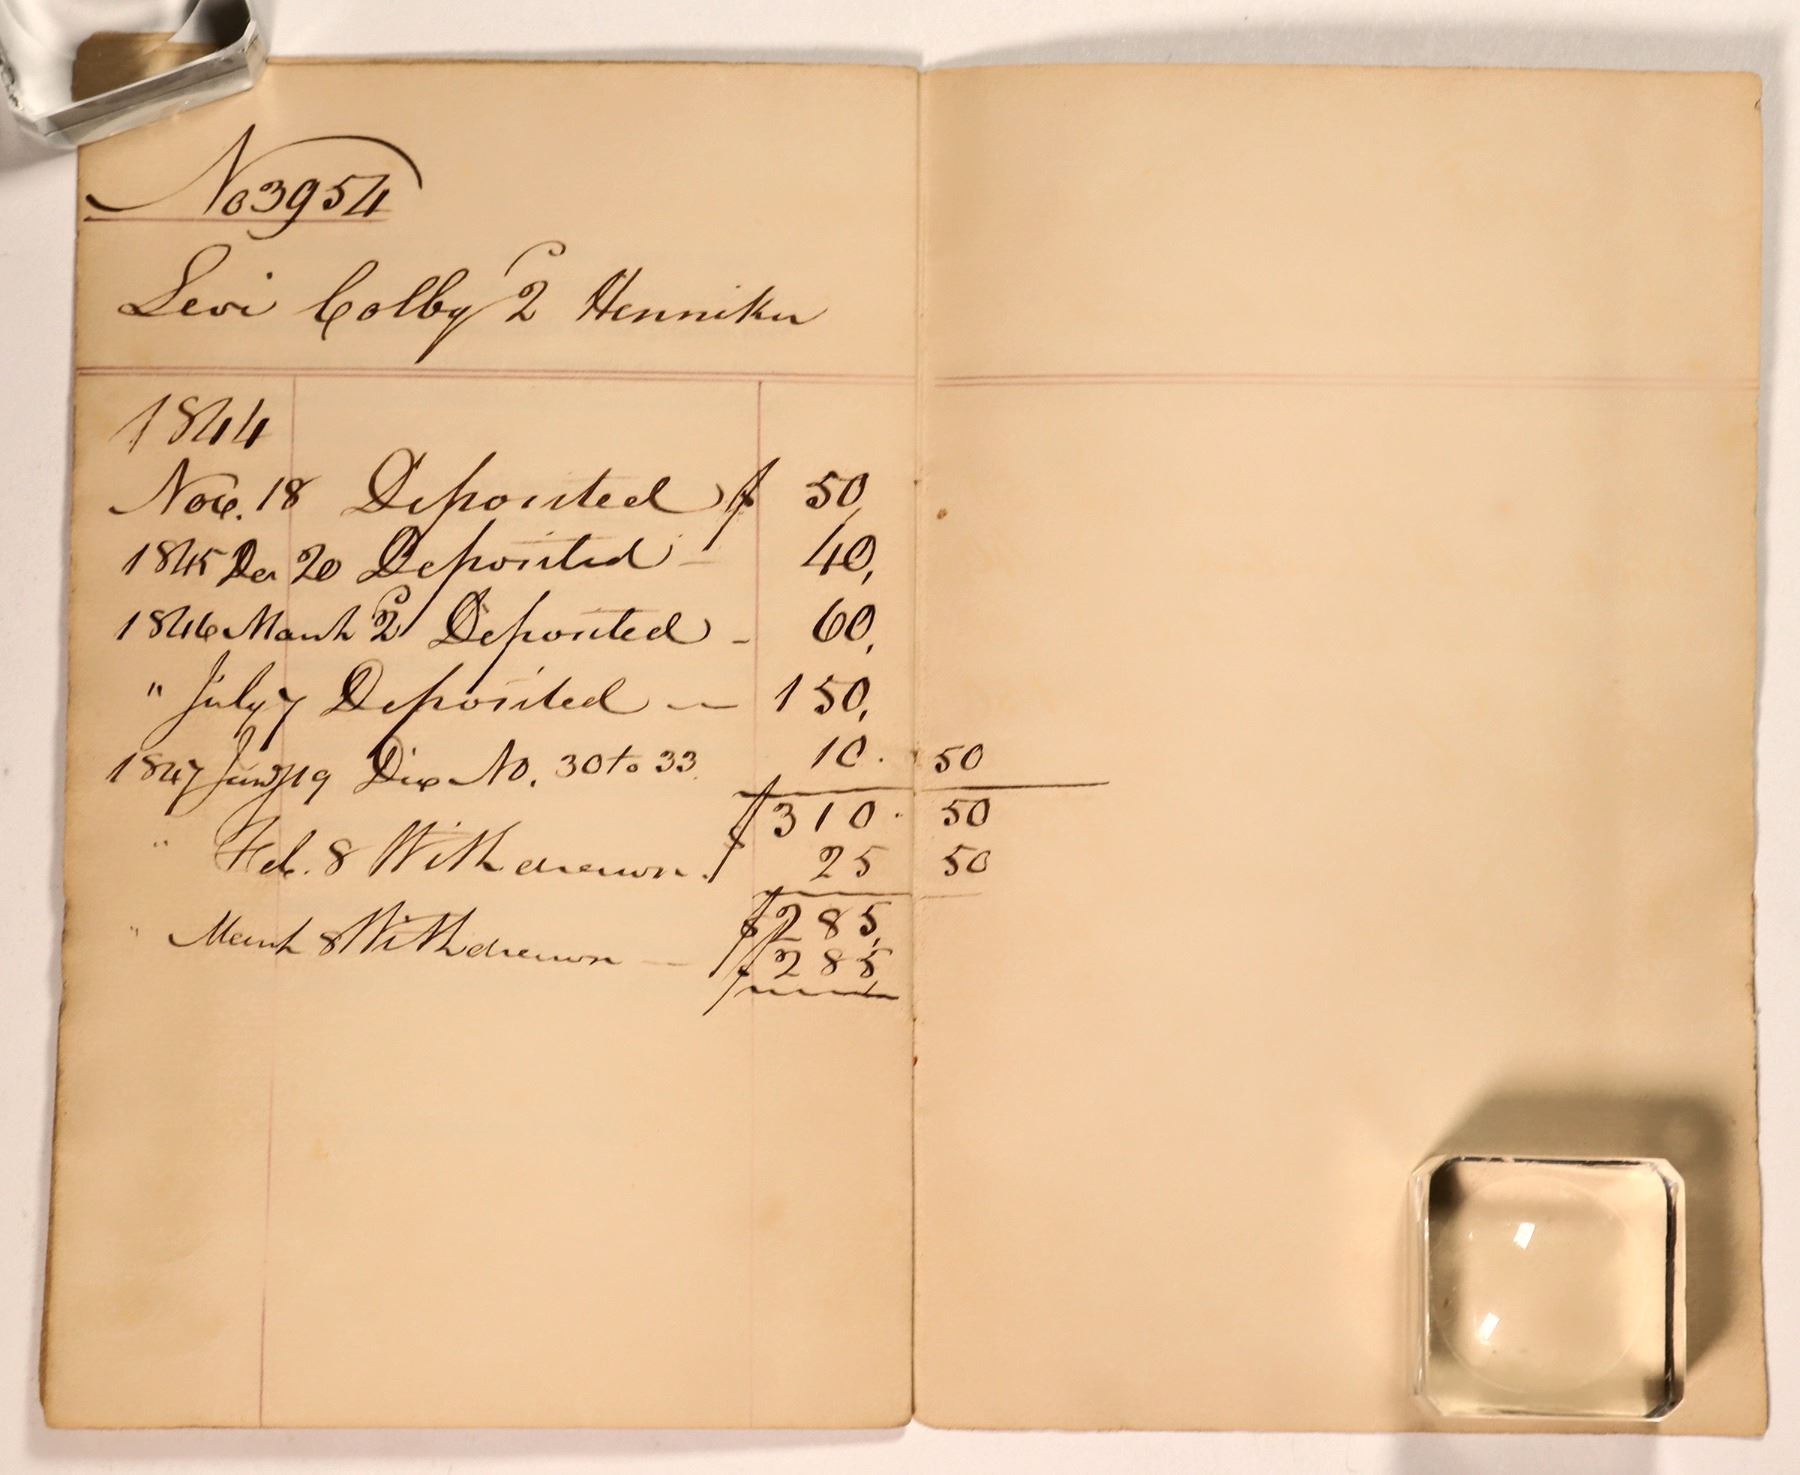 No 3954
Levi Colby 2 Henniker
1844
Nov. 18 Deposited $ 50,
1845 Dec 20 Deposited - 40,
1846 March 2 Deposited - 60,
" July 7 Deposited - 150,
1847 19 Div No. 30 to 33 10. 50
$310. 50
" Feb. 8 Withdrawn. 25 50
$285,
" March 8 Withdrawn - $285,